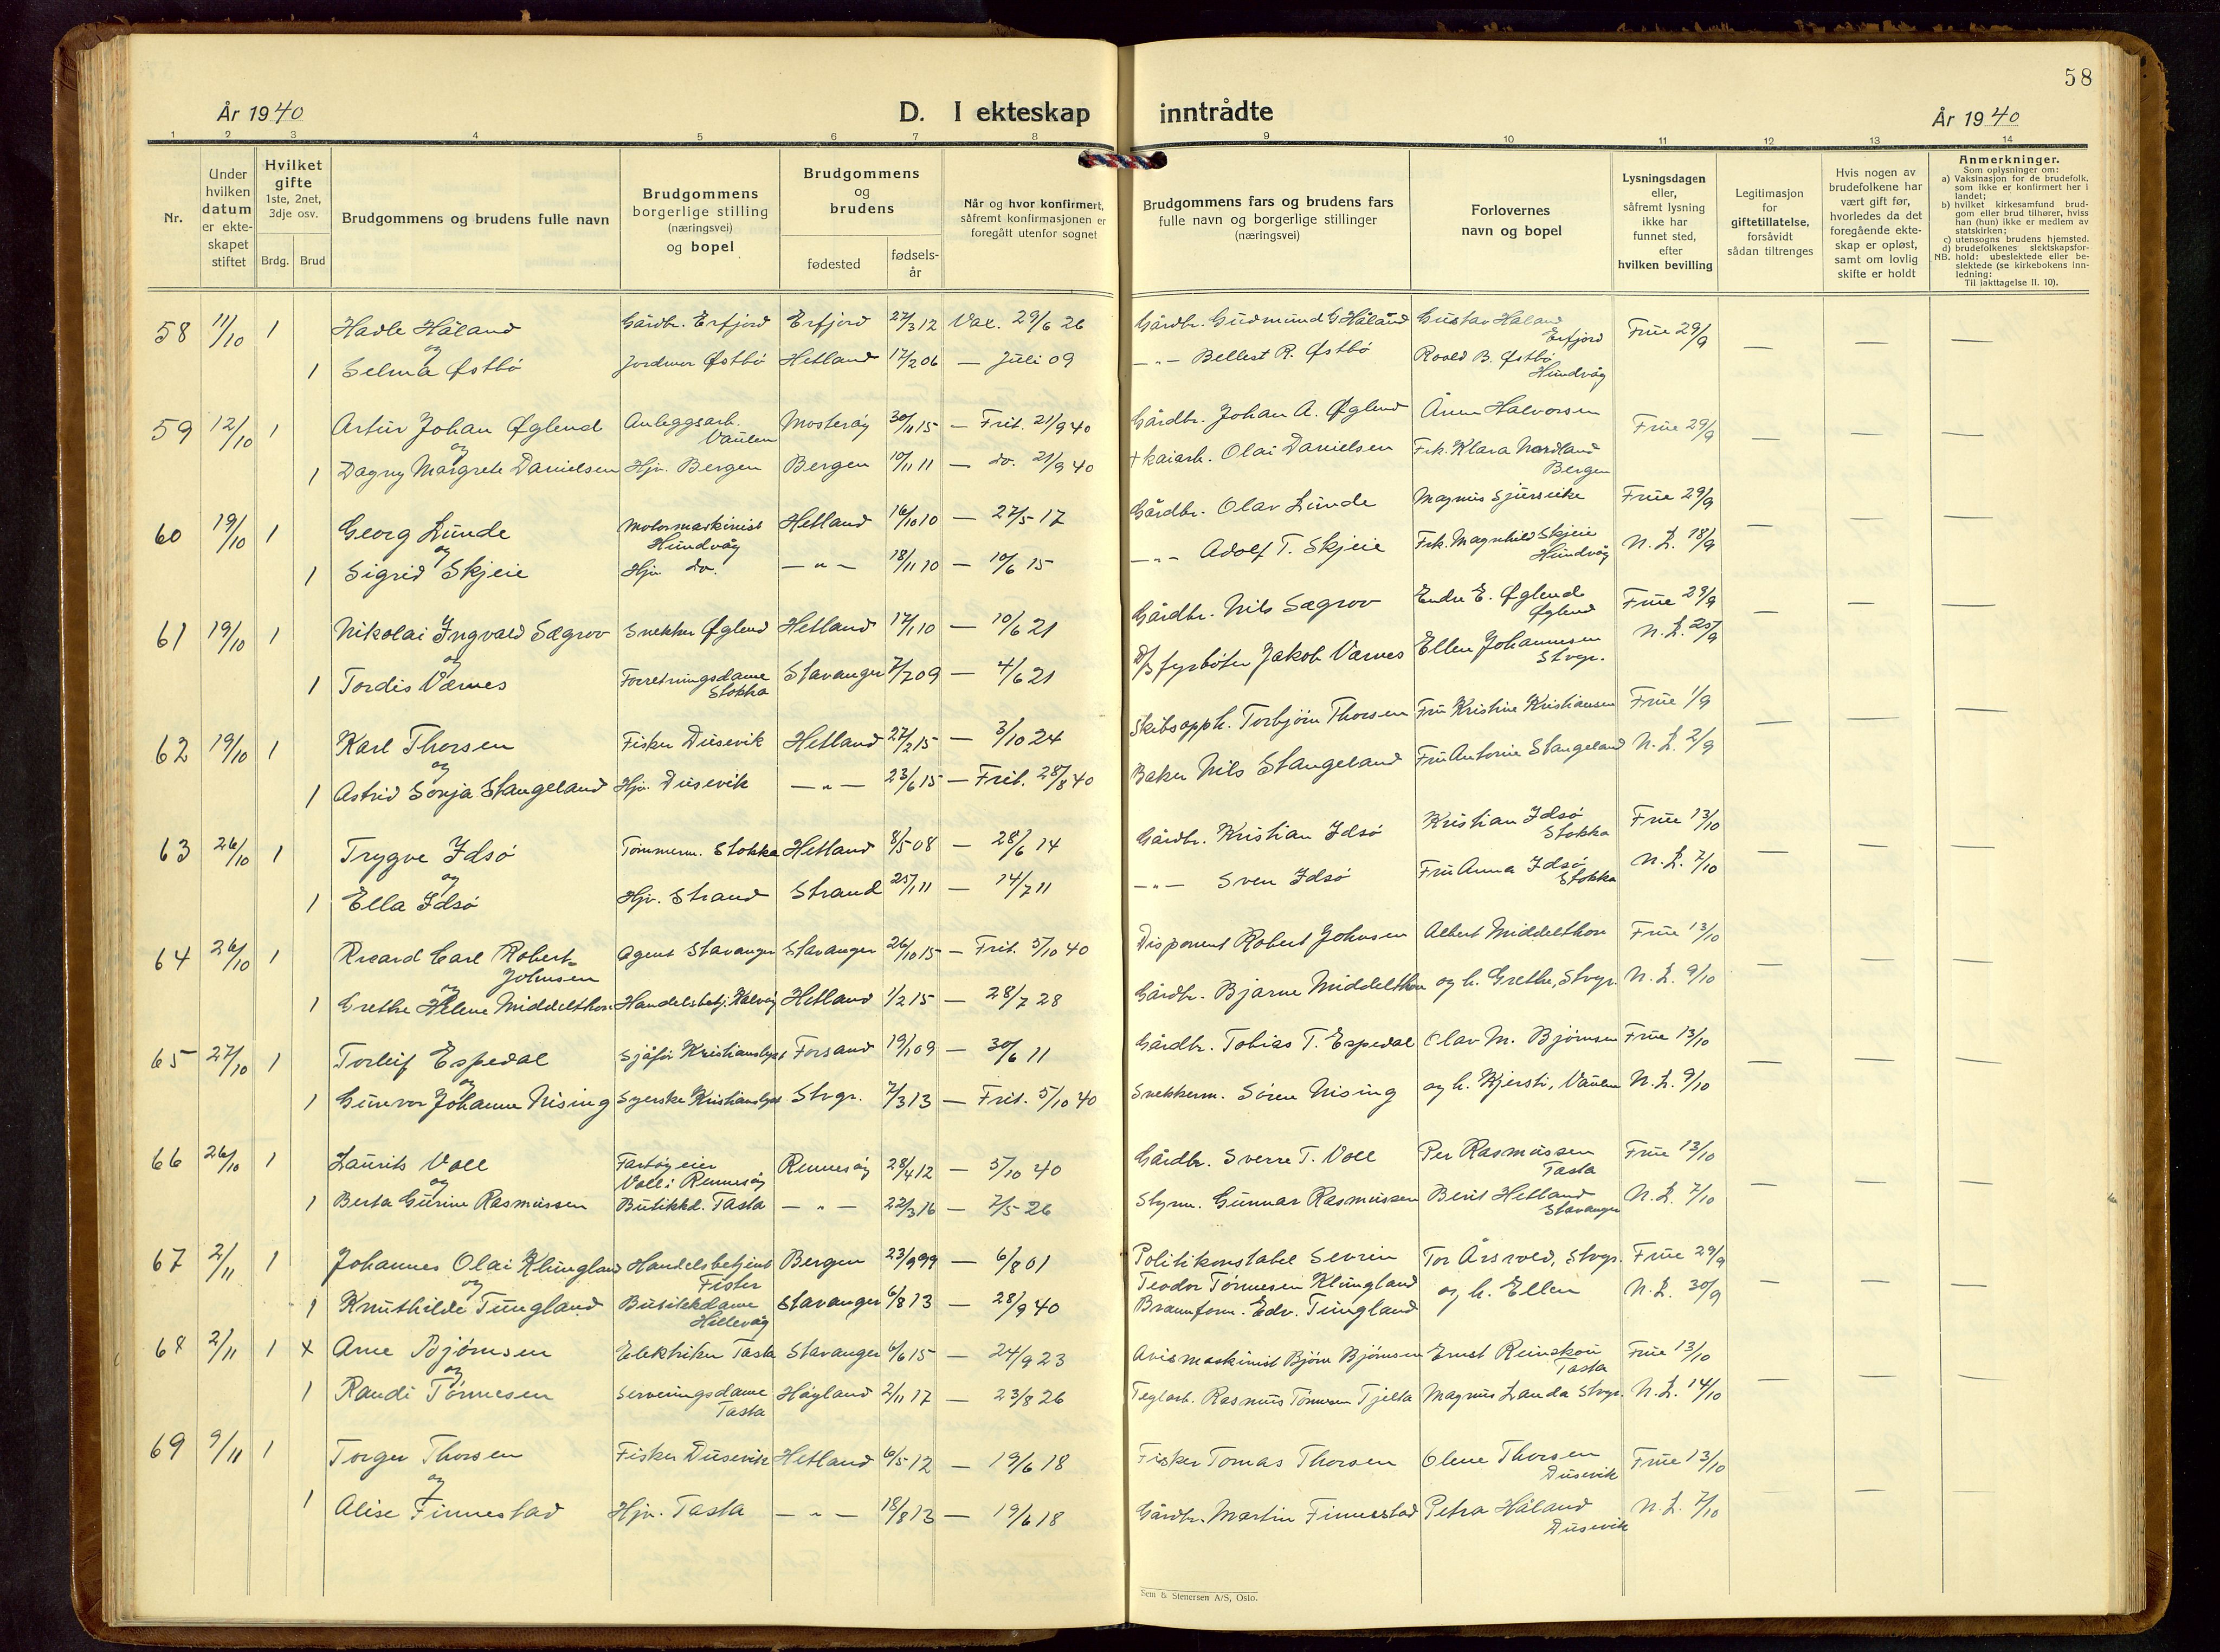 58
År 1940
D. I ekteskap inntrådte
År 1940
1 2 3 4 5 6 7 8 9 10 11 12 13 14
Nr.
Under hvilken datum er ekte-skapet stiftet
Hvilket gifte 1ste, 2net, 3dje osv.
Brdg. Brud
Brudgommens og brudens fulle navn
Brudgommens borgerlige stilling (næringsvei) og bopel
Brudgommens og brudens
fødested
fødsels-år
Når og hvor konfirmert, såfremt konfirmasjonen er foregått utenfor sognet
Brudgommens fars og brudens fars fulle navn og borgerlige stillinger (næringsvei)
Forlovernes navn og bopel
Lysningsdagen eller, såfremt lysning ikke har funnet sted, efter hvilken bevilling
Legitimasjon for giftetillatelse, forsåvidt sådan tiltrenges
Hvis nogen av brudefolkene har vært gift før, hvorledes da det foregående ekte-skap er opløst, samt om lovlig skifte er holdt
Anmerkninger.
Som oplysninger om:
a) Vaksinasjon for de brudefolk, som ikke er konfirmert her i landet;
b) hvilket kirkesamfund brud-gom eller brud tilhører, hviss han (hun) ikke er medlem av statskirken;
c) utensogns brudens hjemsted.
d) brudefolkenes slektskapsfor-hold: ubeslektede eller be-slektede (se kirkebokens inn-ledning:
NB. Til iakttagelse II. 10).
58 11/10 1 Hadle Håland Gårdbr. Erfjord Erfjord 27/3 12 Vax. 29/6 26 Gårdbr. Gudmund G Håland Gustav Håland Erfjord Frue 29/9 — — —
og
1 Selma Østbö Jordmor Østbö Hetland 17/2 06 — Juli 09 —"— Bellest R. Østbö Roald B. Østbö Hundvåg
59 12/10 1 Artur Johan Øglend Anleggsarb. Vaulen Mosterøy 30/11 15 — Frit. 21/9 40 Gårdbr. Johan A. Øglend Halvorsen Frue 29/9 — — —
og
1 Dagny Margrete Danielsen Hjv. Bergen Bergen 10/11 11 — do. 21/9 40 + kaiarb. Olai Danielsen Frk. Klara Nordland Bergen
60 19/10 1 Georg Lunde Motormaskinist Hundvåg Hetland 16/10 10 — 27/5 17 Gårdbr. Olav Lunde Magnus Frue 29/9 — — —
og
1 Sigrid Skjeie Hjv. do. —"— 18/11 10 — 10/6 15 —"— Adolf T. Skjeie Frk. Magnhild Skjeie Hundvåg N. L. 18/9
61 19/10 1 Nikolai Ingvald Sægrov Snekker Øglend Hetland 17/1 10 — 10/6 21 Gårdbr. Nils Sægrov Endre E. Øglend Øglend Frue 29/9 — — —
og
1 Tordis Værnes Forretningsdame Stokka Stavanger 7/7 09 — 4/6 21 D/S fyrbøter Jakob Værnes Ellen Johannesen Stvgr. N. L. 25/9
62 19/10 1 Karl Thorsen Fisker Dusevik Hetland 27/2 15 — 3/10 24 Skibsopph. Torbjörn Thorsen Fru Kristine Kristiansen Frue 1/9 — — —
og
1 Astrid Sonja Stangeland Hjv. Dusevik —"— 23/6 15 — Frit. 28/8 40 Baker Nils Stangeland Fru Antonie Stangeland N. L. 2/9
63 26/10 1 Trygve Idsö Tømmerm. Stokka Hetland 8/5 08 — 28/6 14 Gårdbr. Kristian Idsö Kristian Idsö Stokka Frue 13/10 — — —
og
1 Ella Idsö Hjv. Strand Strand 25/1 11 — 14/7 11 —"— Sven Idsö Fru Anna Idsö Stokka N. L. 7/10
64 26/10 1 Ricard Carl Robert Johnsen Agent Stavanger Stavanger 26/10 15 — Frit. 5/10 40 Disponent Robert Johnsen Albert Middelthon Frue 13/10 — — —
og
1 Grethe Helene Middelthon Handelsbetj. Kalvøy Hetland 1/2 15 — 28/7 28 Gårdbr. Bjarne Middelthon og h. Grethe, Stvgr. N. L. 9/10
65 27/10 1 Torleif Espedal Sjåför Kristianslyst Forsand 19/1 09 — 30/6 11 Gårdbr. Tobias T. Espedal Olav M. Bjørnsen Frue 13/10 — — —
og
1 Gunvor Johanne Nising Syerske Kristianslyst Stvgr. 7/3 13 — Frit. 5/10 40 Snekkerm. Sören Nising og h. Kjersti, Vaulen N. L. 9/10
66 26/10 1 Laurits Voll Fartøyeier Voll i Rennesøy Rennesøy 28/4 12 — 5/10 40 Gårdbr. Sverre T. Voll Per Rasmussen Tasta Frue 13/10 — — —
og
1 Berta Gurine Rasmussen Butikkd. Tasta —"— 22/3 16 — 2/5 26 Styrm. Gunnar Rasmussen Berit Hetland Stavanger N. L. 7/10
67 2/11 1 Johannes Olai Klungland Handelsbetjent Fister Bergen 23/9 99 — 6/8 01 Politikonstabel Sevrin Teodor Tönnesen Klungland Tor Årsvold, Stvgr. Frue 29/9 — — —
og
1 Knuthilde Tungland Butikkdame Hillevåg Stavanger 6/8 13 — 28/9 40 Brannform. Edv. Tungland og h. Ellen N. L. 30/9
68 2/11 1 x Arne Bjørnsen Elektriker Tasta Stavanger 6/6 15 — 24/9 23 Avismaskinist Bjørn Bjørnsen Ernst Reinskou Tasta Frue 13/10 — — —
og
1 Randi Tönnesen Serveringsdame Tasta Høyland 2/11 17 — 23/8 26 Teglarb. Rasmus Tönnesen Tjelta Magnus Landa Stvgr. N. L. 14/10
69 9/11 1 Torger Thorsen Fisker Dusevik Hetland 6/5 12 — 19/6 18 Fisker Tomas Thorsen Olene Thorsen Dusevik Frue 13/10 — — —
og
1 Alise Finnestad Hjv. Tasta —"— 18/8 13 — 19/6 18 Gårdbr. Martin Finnestad Petra Håland Dusevik N. L. 7/10
Sem & Stenersen A/S, Oslo.